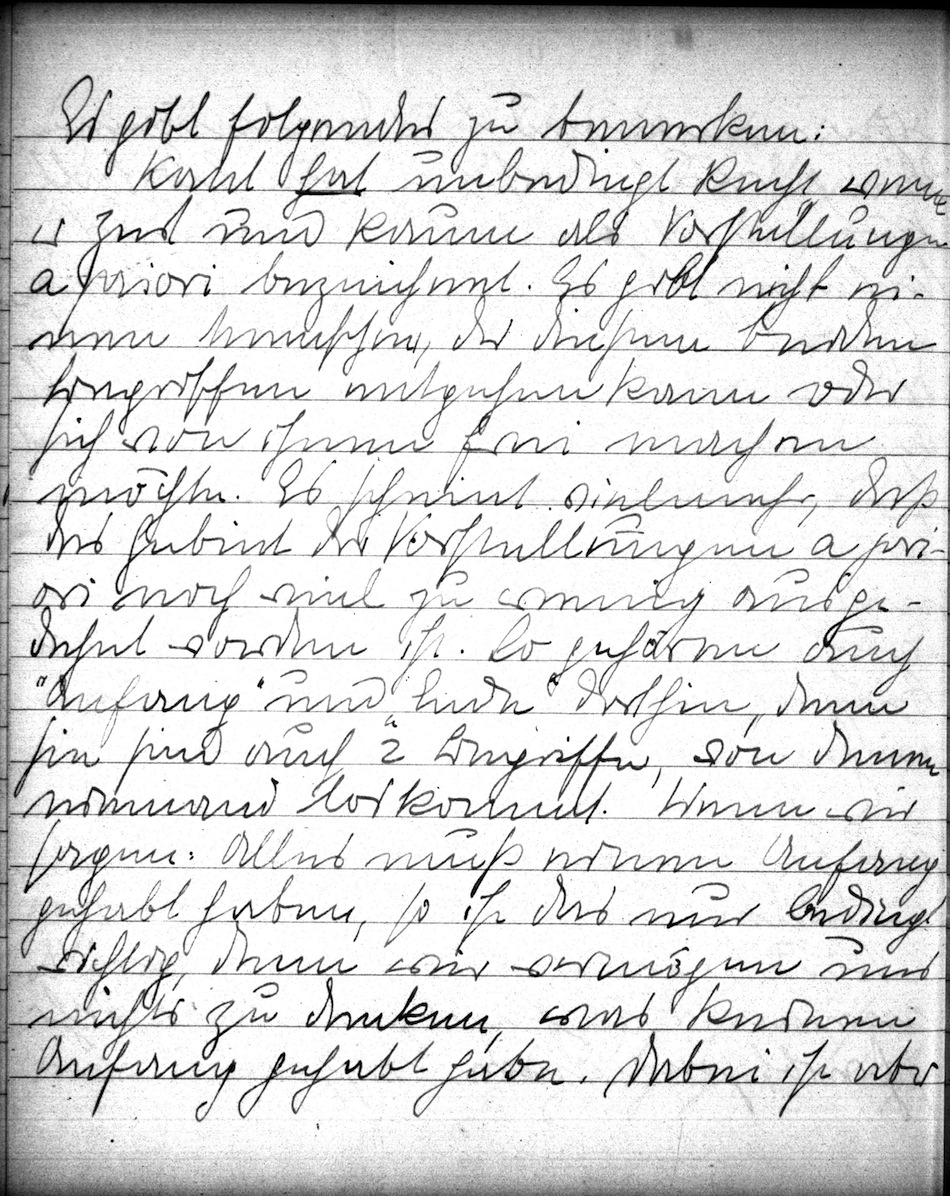 Es gibt folgendes zu bemerken:
Kant hat unbedingt Recht, wenn
er Zeit und Raum als Vorstellungen
a priori bezeichnet. Es gibt nicht ei-
nen Menschen, der diesen beiden
Begriffen entgehen kann oder
sich von ihnen frei machen
möchte. Es scheint vielmehr, daß
das Gebiet der Vorstellungen a pri-
ori noch viel zu wenig ausge-
dehnt worden ist. So gehören auch
"Anfang" und "Ende" dorthin, denn
sie sind auch 2 Begriffe, von denen
niemand loskommt. Wenn wir
sagen: Alles muß einen Anfang
gehabt haben, so ist das nur bedingt
richtig, denn wir vermögen uns
nichts zu denken, was keinen
Anfang gehabt habe. Dabei ist aber